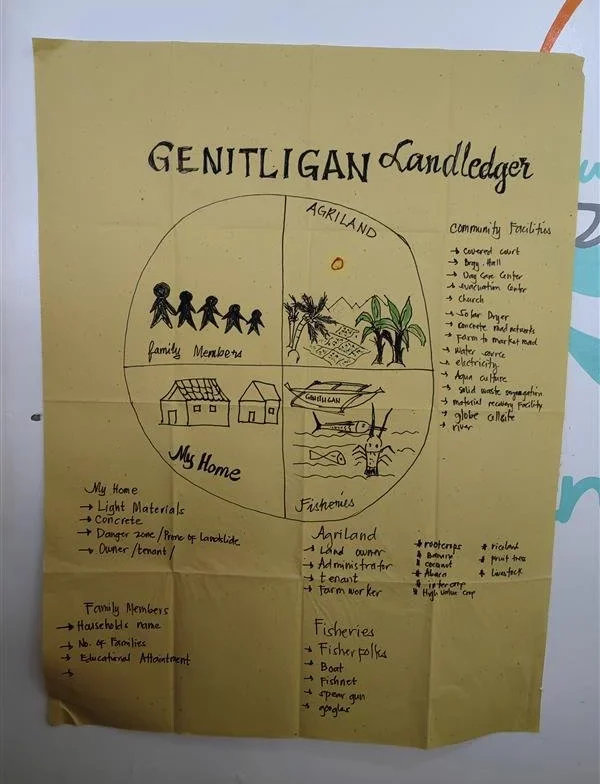 GENITLIGAN Landledger
AGRILAND
family Members
GENITLIGAN
My Home
Fisheries
Community Facilities
→ Covered court
→ Brgy. Hall
→ Day Care Center
→ evacuation Center
→ Church
→ Solar Dryer
→ concrete road networks
→ Farm to market road
→ water source
→ electricity
→ Aqua culture
→ solid waste segregation
→ material recovery facility
→ globe cellsite
→ river
My Home
→ Light Materials
→ Concrete
→ Danger zone/Prone of Landslide
→ Owner/tenant/
Family Members
→ Households name
→ No. of Families
→ Educational Attainment
→
Agriland
→ Land owner
→ Administrator
→ tenant
→ Farm worker
* rootcrops
* Banana
* coconut
* Abaca
* intercrop
* High value crop
* riceland
* fruit trees
* livestock
Fisheries
→ Fisherfolks
→ Boat
→ Fishnet
→ spear gun
→ googles